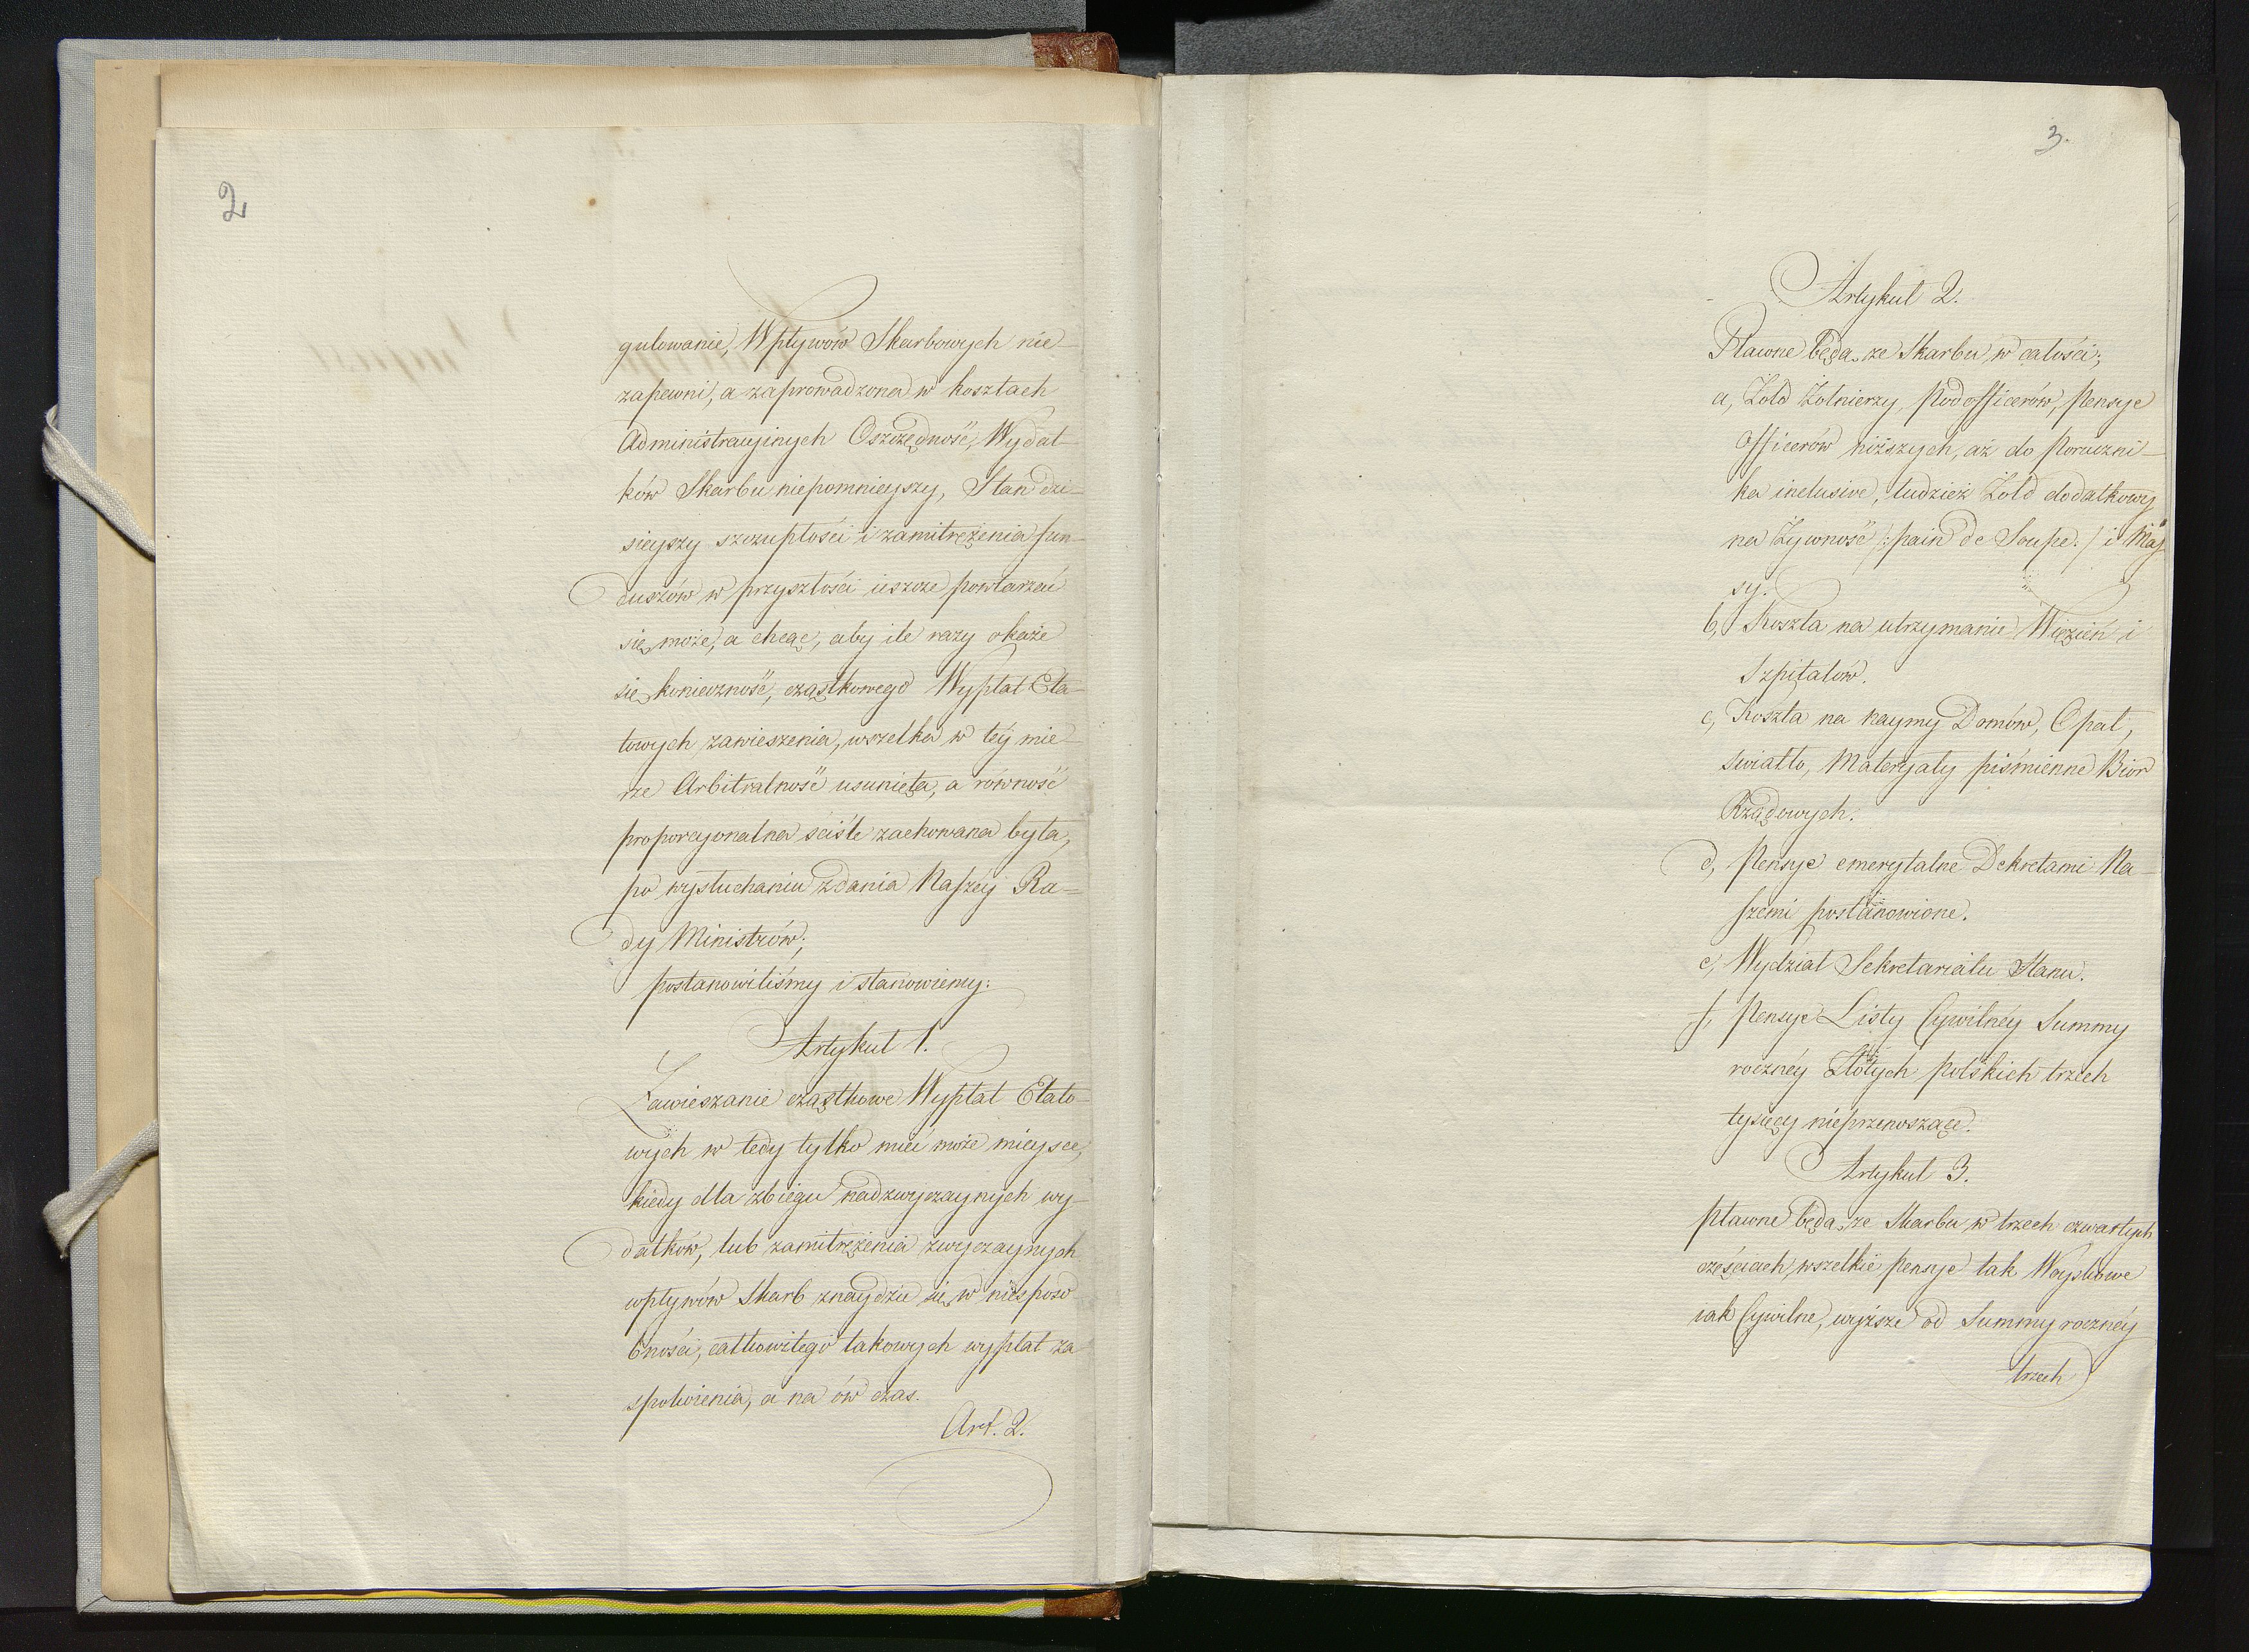 2
gulowanie, Wpływów Skarbowych nie-
zapewni, a zaprowadzona w kosztach
Administracyinych Oszczędność, Wydat-
ków Skarbu niepomnieyszy, Stan dzi-
sieyszy szczupłości i zamitrężenia fun-
duszów w przyszłości ieszcze powtarzać
się może, a chcąc, aby ile razy okaże
się konieczność, cząstkowego Wypłat Eta-
towych zawieszenia, wszelka w téy mie-
rze Arbitralność usunięta, a równość
proporcyonalna ściśle zachowana była,
po wysłuchaniu zdania Naszéy Ra-
dy Ministrów;
postanowiliśmy i stanowiemy:
Artykuł 1.
Zawieszanie cząstkowe Wypłat Etato-
wych w tedy tylko mieć może mieysce,
kiedy dla zbiegu nadzwyczaynych wy-
datków, lub zamitrężenia zwyczaynych
wpływów Skarb znaydzie się w niesposo
bności, całkowitego takowych wypłat za
spokoienia, a na ów czas.
Art. 2.
3.
Artykuł 2.
Płatne będą ze Skarbu w całości;
a, Żołd Żołnierzy, Podofficerów, Pensye
Officerów niższych, aż do Poruczni-
ka inclusive, tudzież Żołd dodatkowy
na Żywność /: pain de Soupe. / i Mas
sy.
b, Koszta na utrzymanie Więzień i
Szpitalów.
c, Koszta na naymy Domów, Opał,
światło, Materyały piśmienne Biór
Rządowych.
d, Pensye emerytalne Dekretami Na-
szemi postanowione.
e, Wydział Sekretariatu Stanu.
f, Pensye Listy Cywilnéy Summy
rocznéy Złotych polskich trzech
tysięcy nieprzenoszące.
Artykuł 3.
Płatne będą ze Skarbu w trzech czwartych
częściach, wszelkie pensye tak Woyskowe
iak Cywilne, wyższe od Summy rocznéy
trzech